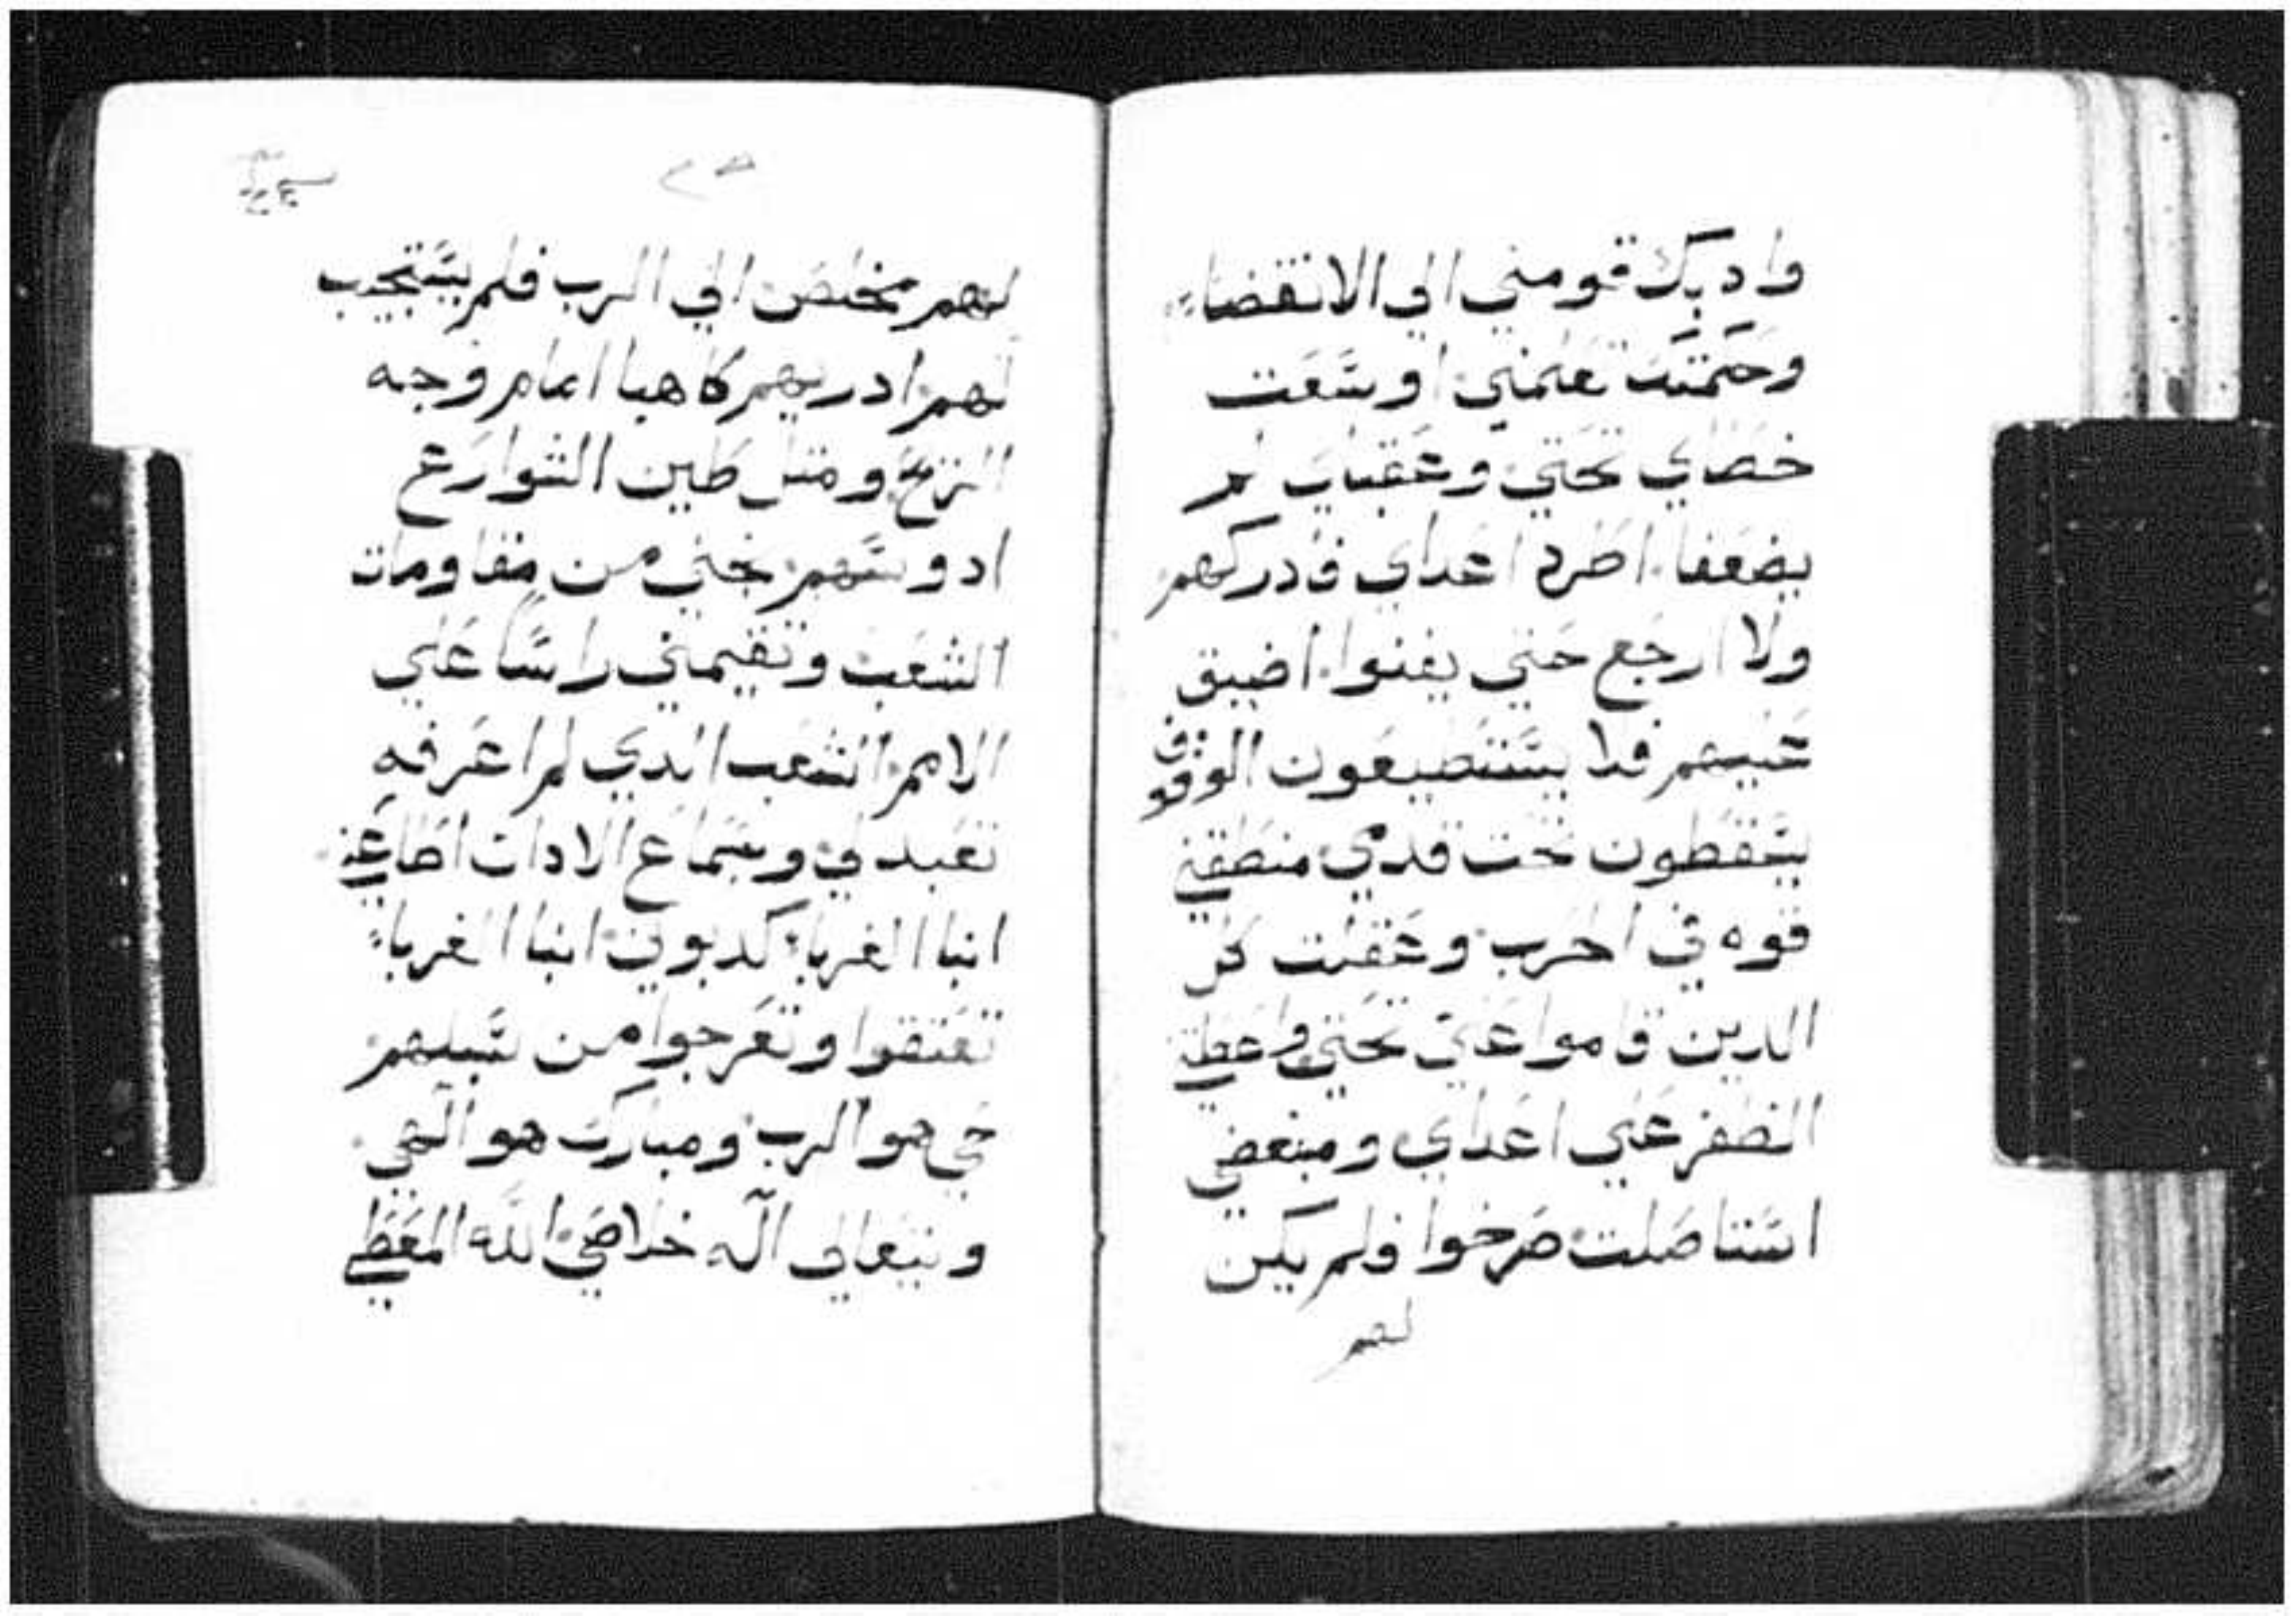 وادبك قومني الى الانقضاء
وحكمتك تعلمني اوسعت
خطاي تحتي وعقباي لم
يضعفا اطرد اعداي فادركهم
ولا ارجع حتي يفنوا اضيق
عليهم فلا يستطيعون الوقوف
يسقطون تحت قدمي منطقني
قوه في الحرب وعقلت كل
الدين قاموا علي تحتي واعطيتني
الظفر علي اعداي ومبغضي
استاصلت صرخوا فلم يكن
لهم
لهم مخلص الي الرب فلم يستجيب
لهم ادريهم كالهبا امام وجه
الريح ومثل طين الشوارع
ادوسهم نجني من مقاومات
الشعب وتقيمني راسا علي
الامم الشعب الدي لم اعرفه
تعبد لي وبسماع الادان اطاعني
ابنا الغربا كدبوني ابنا الغربا
تعتقوا وتعرجوا من سبلهم
حي هو الرب ومبارك هو الهي
ويتعالى اله خلاصي الله المعطي